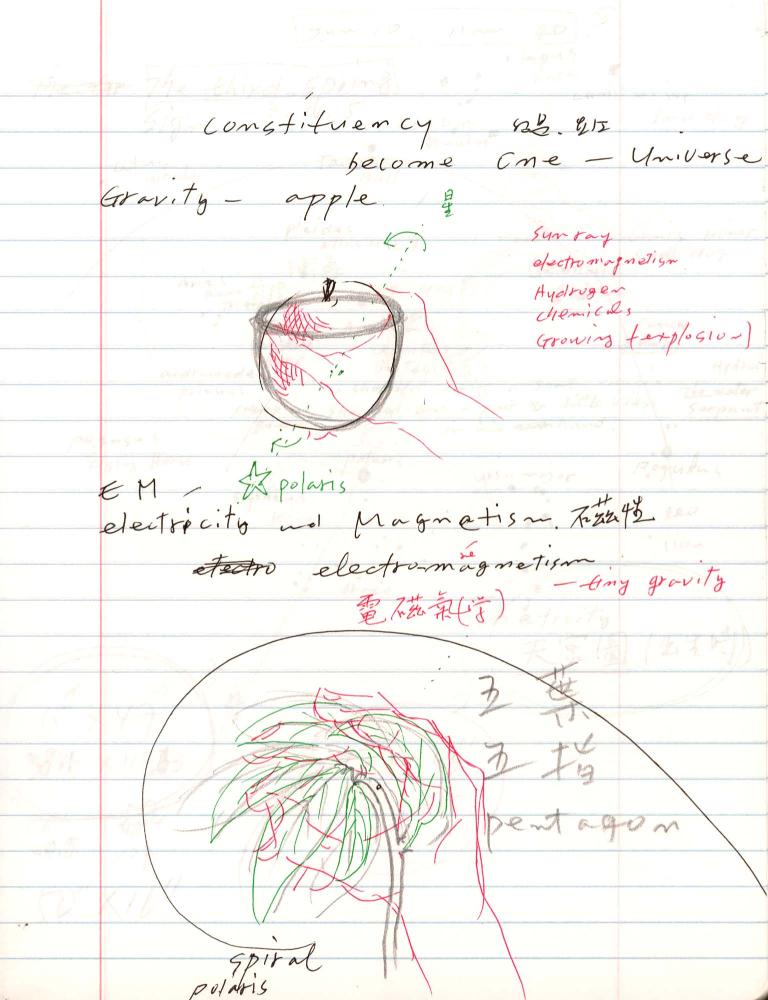 constituency
become One — Universe
Gravity — apple
星
Sun ray
electromagnetism
Hydrogen
chemicals
Growing (explosion)
☆ polaris
EM —
electricity and Magnetism. 磁性
electromagnetism
— tiny gravity
電磁氣(学)
五葉
五指
pentagon
spiral
polaris